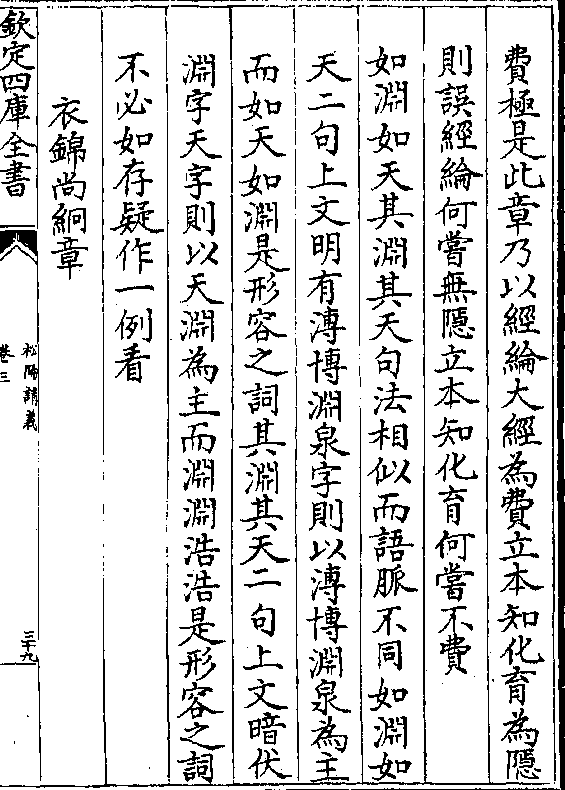 費極是此章乃以經綸大經為費立本知化育為隱
則誤經綸何嘗無隱立本知化育何嘗不費
如淵如天其淵其天句法相似而語脈不同如淵如
天二句上文明有溥博淵泉字則以溥博淵泉為主
而如天如淵是形容之詞其淵其天二句上文暗伏
淵字天字則以天淵為主而淵淵浩浩是形容之詞
不必如存疑作一例看
衣錦尚絅章
欽定四庫全書
松陽講義
卷三
三十九